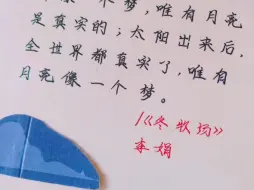 梦，唯有月亮
是真实的；太阳出来后，
全世界都真实了，唯有
月亮像一个梦。
/《冬牧场》
李娟